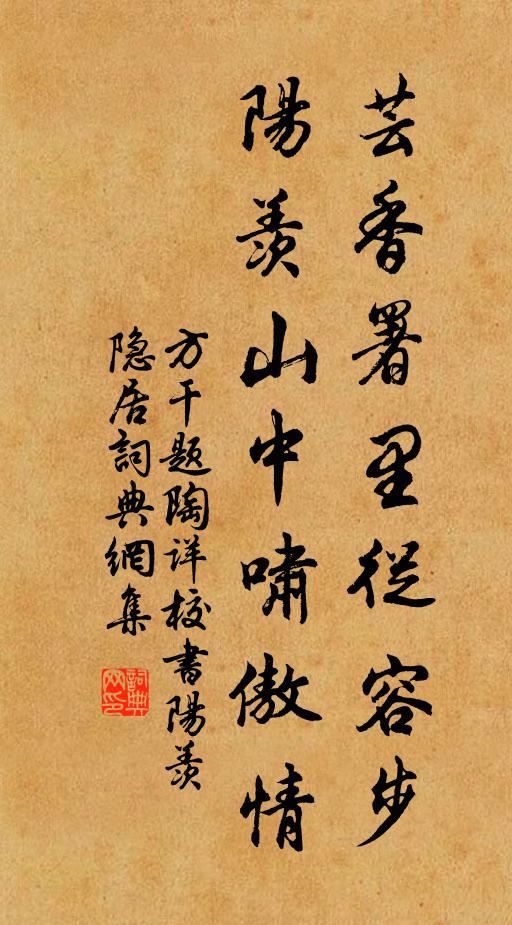 芸香署里從容步
陽羨山中嘯傲情
方干题陶详校書陽羨
隐居詞典網集
詞典网印